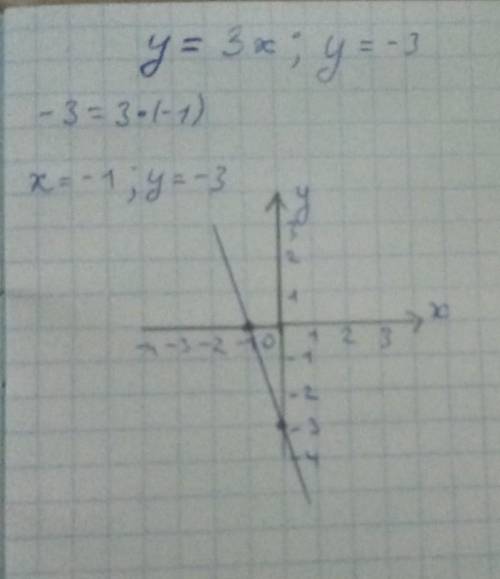 y = 3x; y = -3
-3 = 3·(-1)
x = -1; y = -3
y
3
2
1
x
-4 -3 -2 -1 0 1 2 3
-1
-2
-3
-4